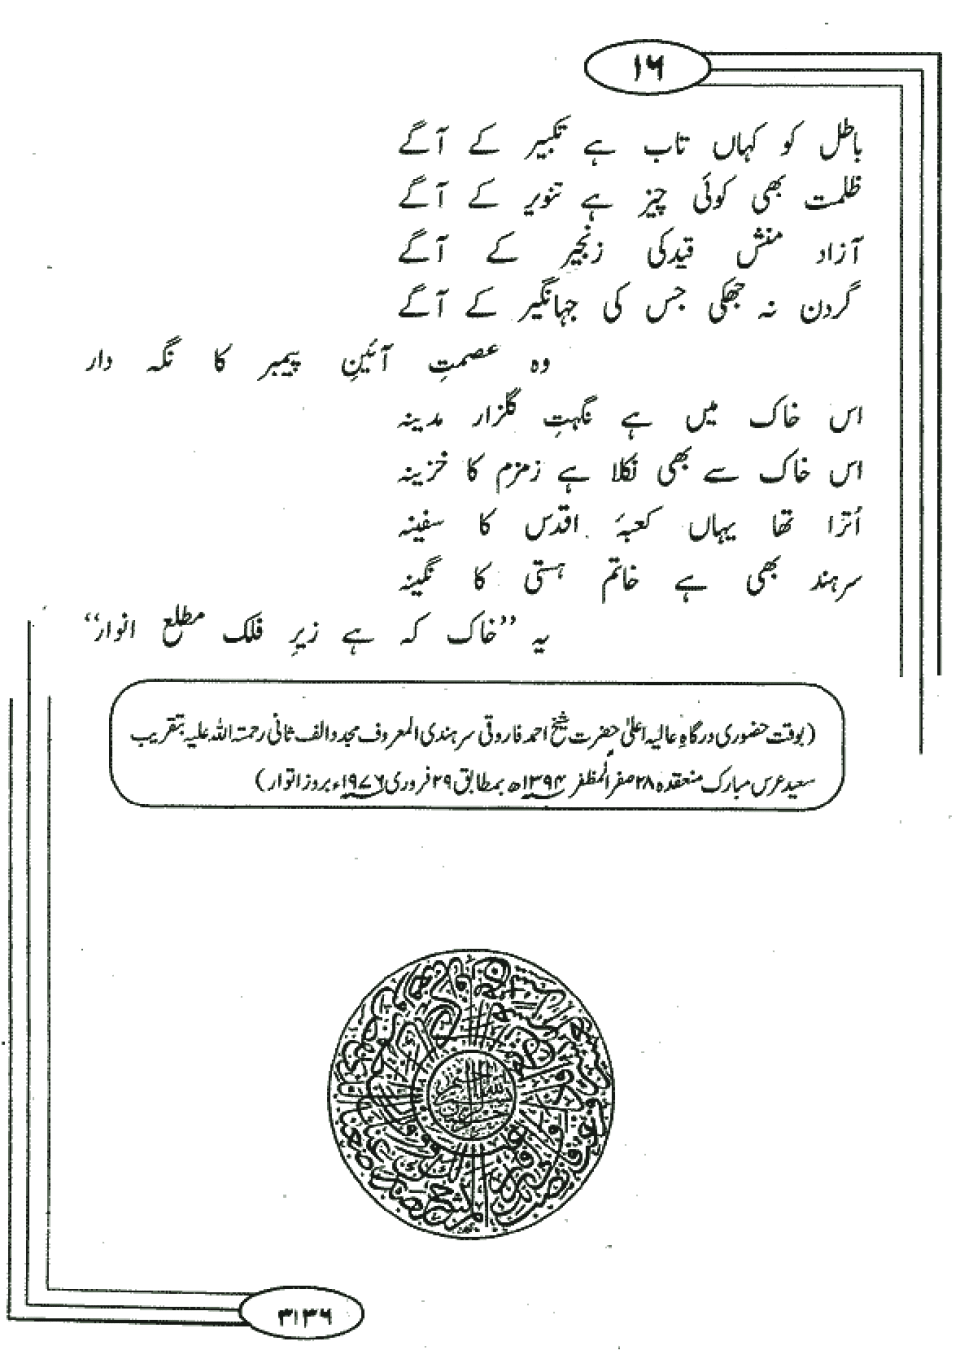 ۱۶
باطل کو کہاں تاب ہے تکبیر کے آگے
ظلمت بھی کوئی چیز ہے تنویر کے آگے
آزاد منش قیدکی زنجیر کے آگے
گردن نہ جھکی جس کی جہانگیر کے آگے
وہ عصمتِ آئینِ پیمبر کا نگہ دار
اس خاک میں ہے نگہتِ گلزار مدینہ
اس خاک سے بھی نکلا ہے زمزم کا خزینہ
اُترا تھا یہاں کعبۂ اقدس کا سفینہ
سرہند بھی ہے خاتم ہستی کا نگینہ
یہ ”خاک کہ ہے زیرِ فلک مطلع انوار“
(بوقت حضوری درگاہِ عالیہ اعلیٰ حضرت شیخ احمد فاروقی سرہندی المعروف مجدد الف ثانی رحمتہ اللہ علیہ بتقریب
سعید عرس مبارک منعقدہ ۲۸ صفر المظفر ۱۳۹۴ھ بمطابق ۲۹ فروری ۱۹۷۶ء بروز اتوار)
بسم الله الرحمن الرحيم
۳۱۳۶